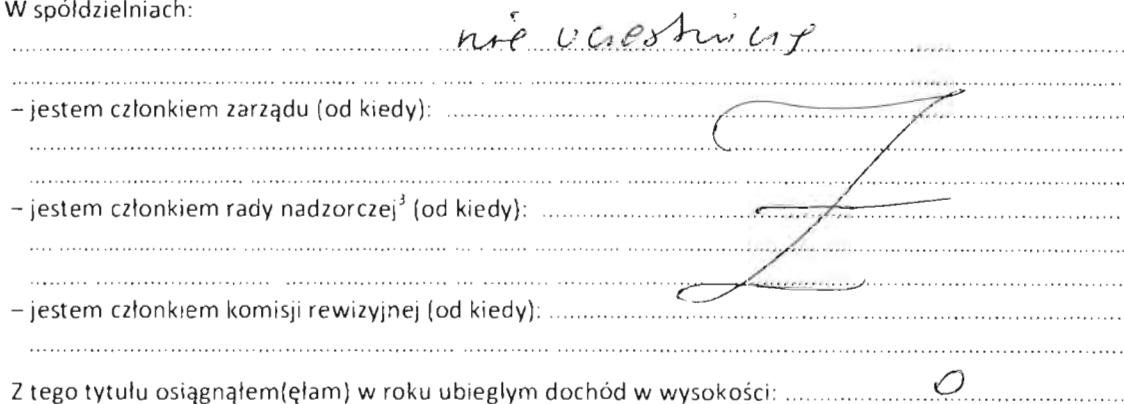 W spółdzielniach:
nie uczestniczę
– jestem członkiem zarządu (od kiedy):
– jestem członkiem rady nadzorczej³ (od kiedy):
– jestem członkiem komisji rewizyjnej (od kiedy):
Z tego tytułu osiągnąłem(ęłam) w roku ubiegłym dochód w wysokości: 0